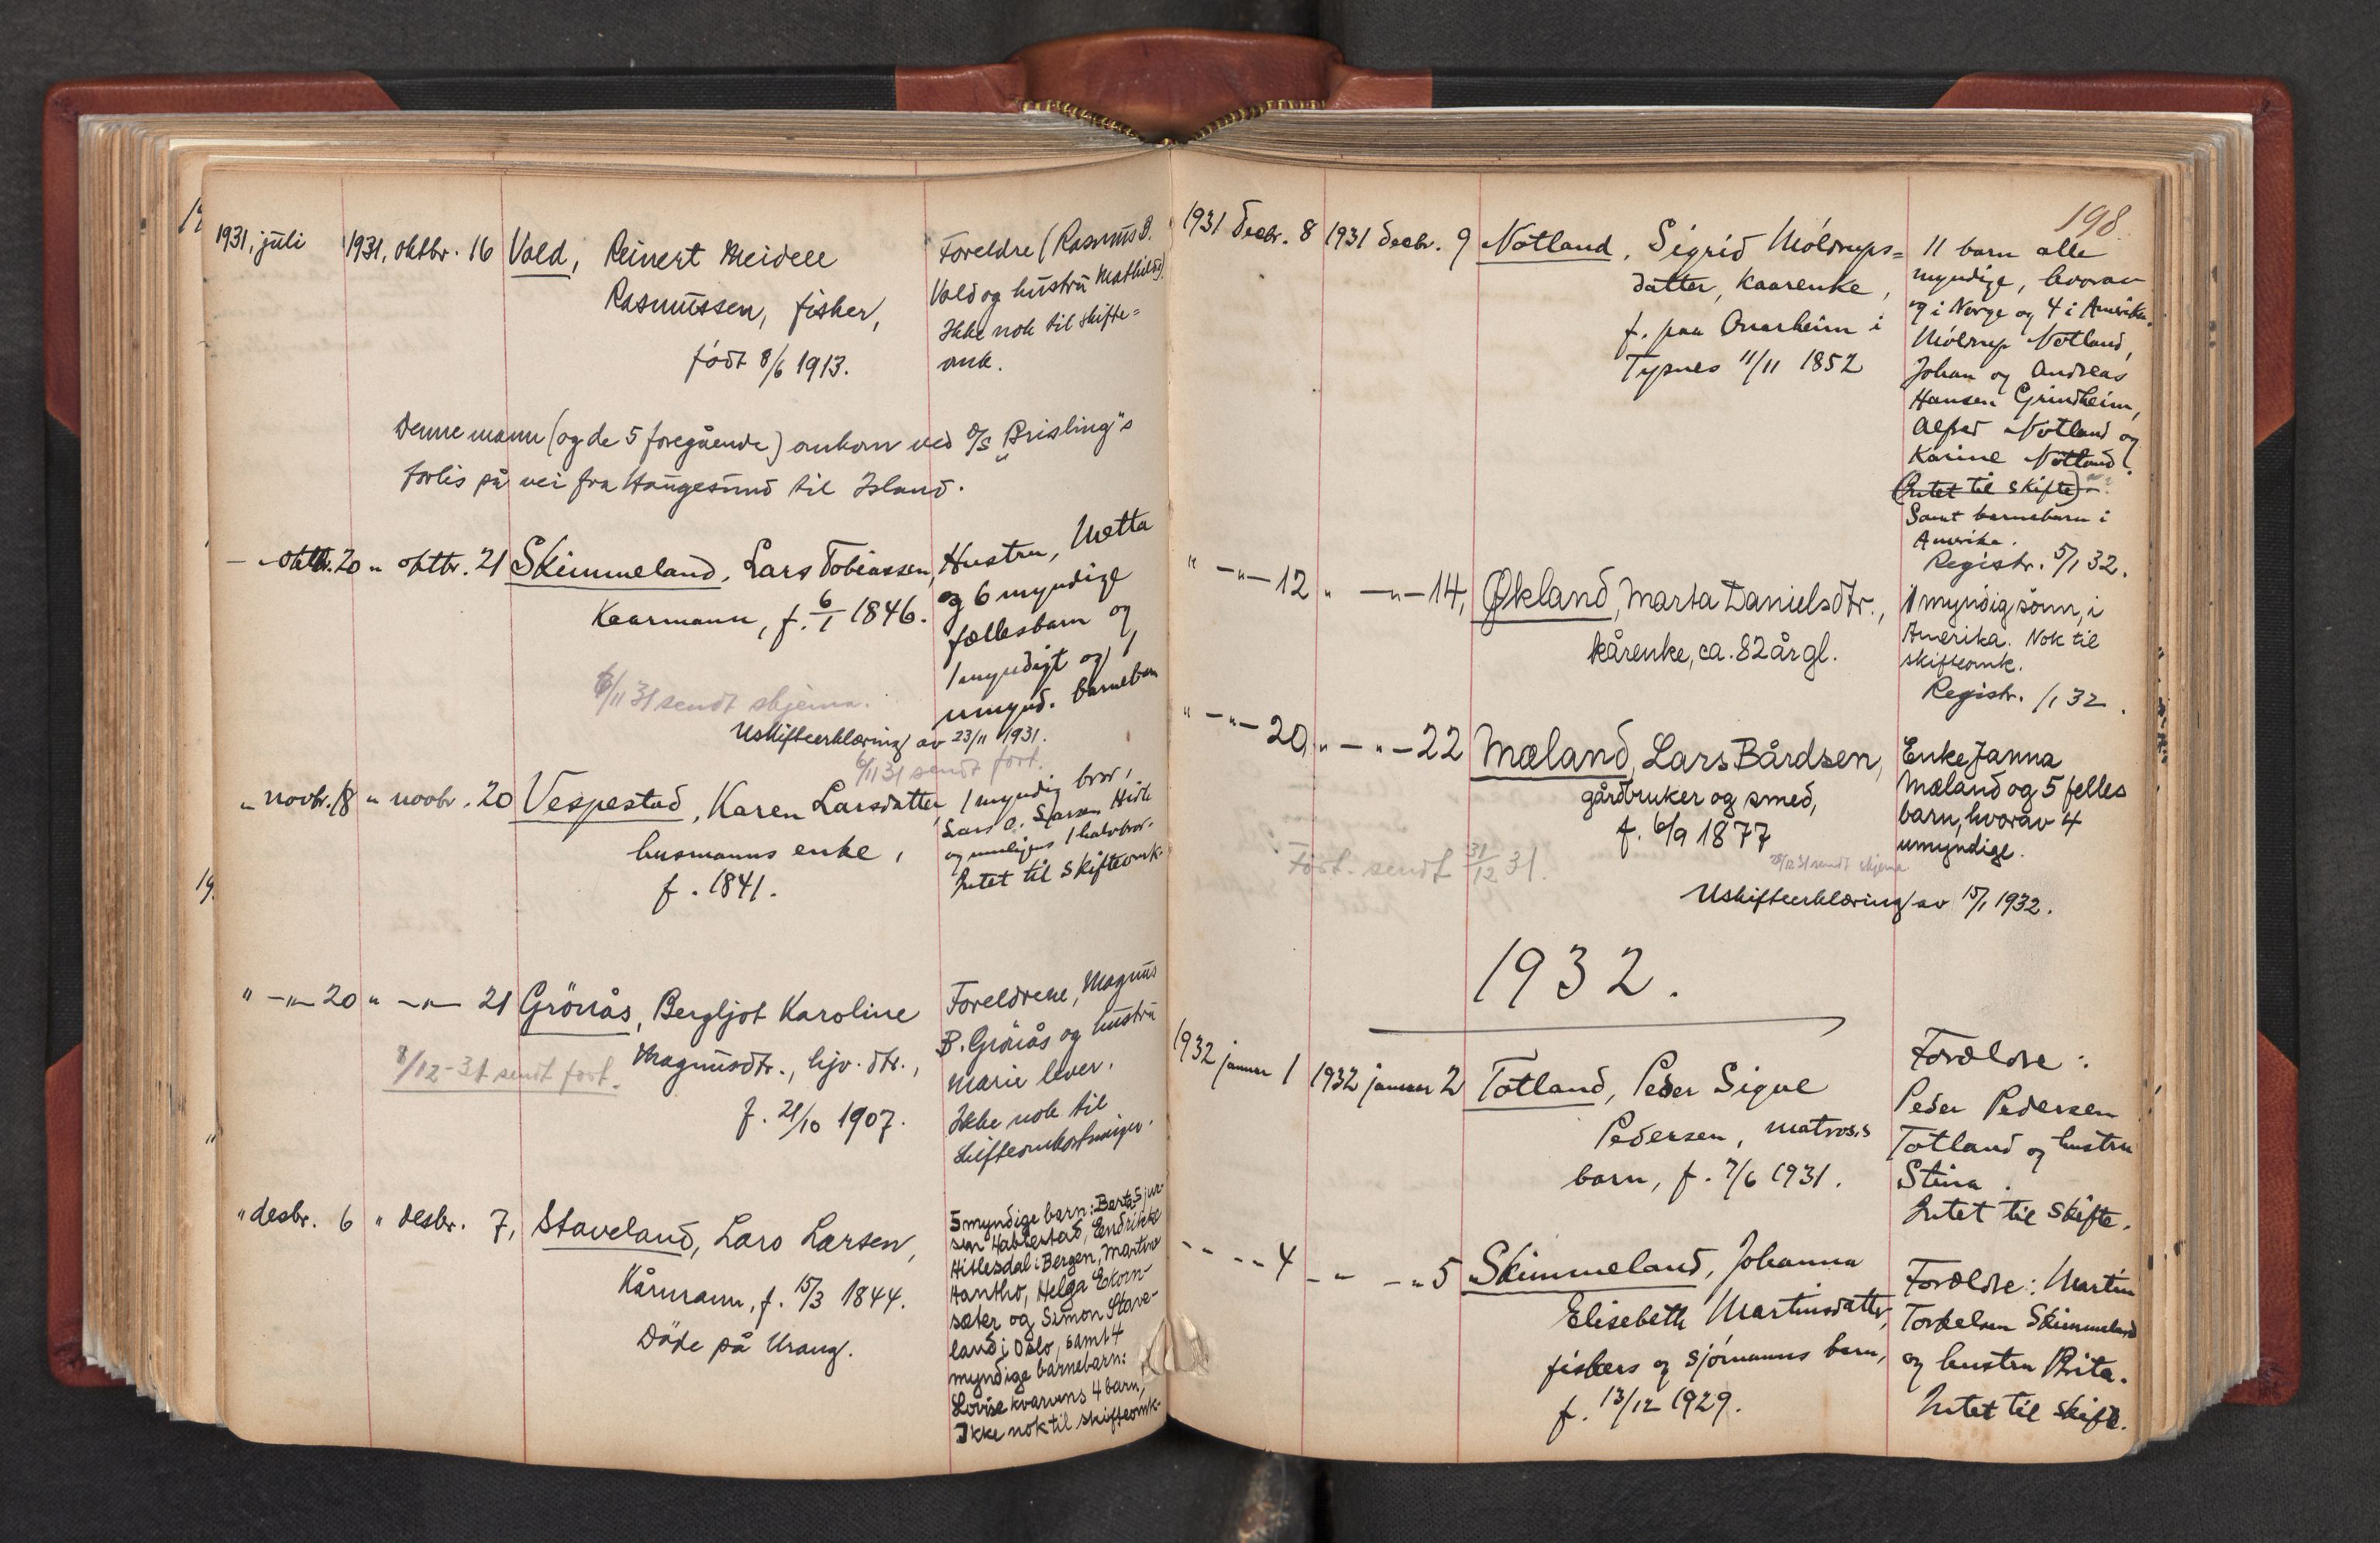 1931, juli 1931, oktbr. 16 Vold, Reinert Meidell
Rasmussen, fisker,
födt 8/6 1913.
Foreldre (Rasmus B.
Vold og hustru Mathilde).
Ikke nok til skifte=
omk.
Denne mann (og de 5 foregående) omkom ved D/S „Brisling"s
forlis på vei fra Haugesund til Island.
— oktbr. 20 „ oktbr. 21 Skimmeland, Lars Tobiassen,
Kaarmann, f. 6/1 1846.
Hustru, Metta
og 6 myndige
fællesbarn og
1 myndigt og 1
umynd. barnebarn
6/11 31 sendt skjema.
Uskifteerklæring av 23/11 1931.
6/11 31 sendt fort.
„ novbr. 18 „ novbr. 20 Vespestad, Karen Larsdatter
husmanns enke,
f. 1841.
1 myndig bror,
og muligens 1 halvbror.
Intet til skifteomk.
" —„— 20 " —„— 21 Grönås, Bergljot Karoline
Magnusdtr., hjv. dtr.,
f. 21/10 1907.
8/12-31 sendt fort.
Foreldrene, Magnus
B. Grönås og hustru
Marie lever.
Ikke nok til
skifteomkostninger.
" desbr. 6 " desbr. 7, Staveland, Lars Larsen,
Kårmann, f. 15/3 1844.
Döde på Urang.
5 myndige barn: Berta Sjur-
sen Hablestad, Eendrikke
Hitlesdal i Bergen, Martine
Hantho, Helga Ekorn-
sæter og Simon Stave-
land i Oslo, samt 4
myndige barnebarn:
Lovise Kvarvens 4 barn,
Ikke nok til skifteomk.
198
1931 Decbr. 8 1931 Decbr. 9 Notland, Sigrid Móldrups=
datter, kaarenke,
f. paa Onarheim i
Tysnes 11/11 1852
11 barn alle
myndige, hvorav
7 i Norge og 4 i Amerika.
Móldrup Notland,
Johan og Andreas
Hansen Grindheim,
Alfred Notland og
Karine Notland.
(Intet til skifte)
Samt barnebarn i
Amerika.
Registr. 5/1 32.
" —„— 12 „ —„— 14, Økland, Marta Danielsdtr.,
kårenke, ca. 82 år gl.
1 myndig sönn, i
Amerika. Nok til
skifteomk.
Registr. /1 32.
" —„— 20 „ —„— 22 Mæland, Lars Bårdsen,
gårdbruker og smed,
f. 6/9 1877
Enke Janna
Mæland og 5 felles
barn, hvorav 4
umyndige.
Fort. sendt 31/12 31.
sendt skjema
Uskifteerklæring av 15/1 1932.
1932.
1932 januar 1 1932 januar 2 Totland, Peder Sigve
Pedersen, matros,s
barn, f. 7/6 1931.
Foreldre:
Peder Pedersen
Totland og hustru
Stina.
Intet til skifte.
- - - - 4 - „ - „ 5 Skimmeland, Johanna
Elisebeth Martinsdatter,
fiskers og sjómanns barn,
f. 13/12 1929.
Foreldre: Martin
Torkelsen Skimmeland
og hustru Brita.
Intet til skifte.